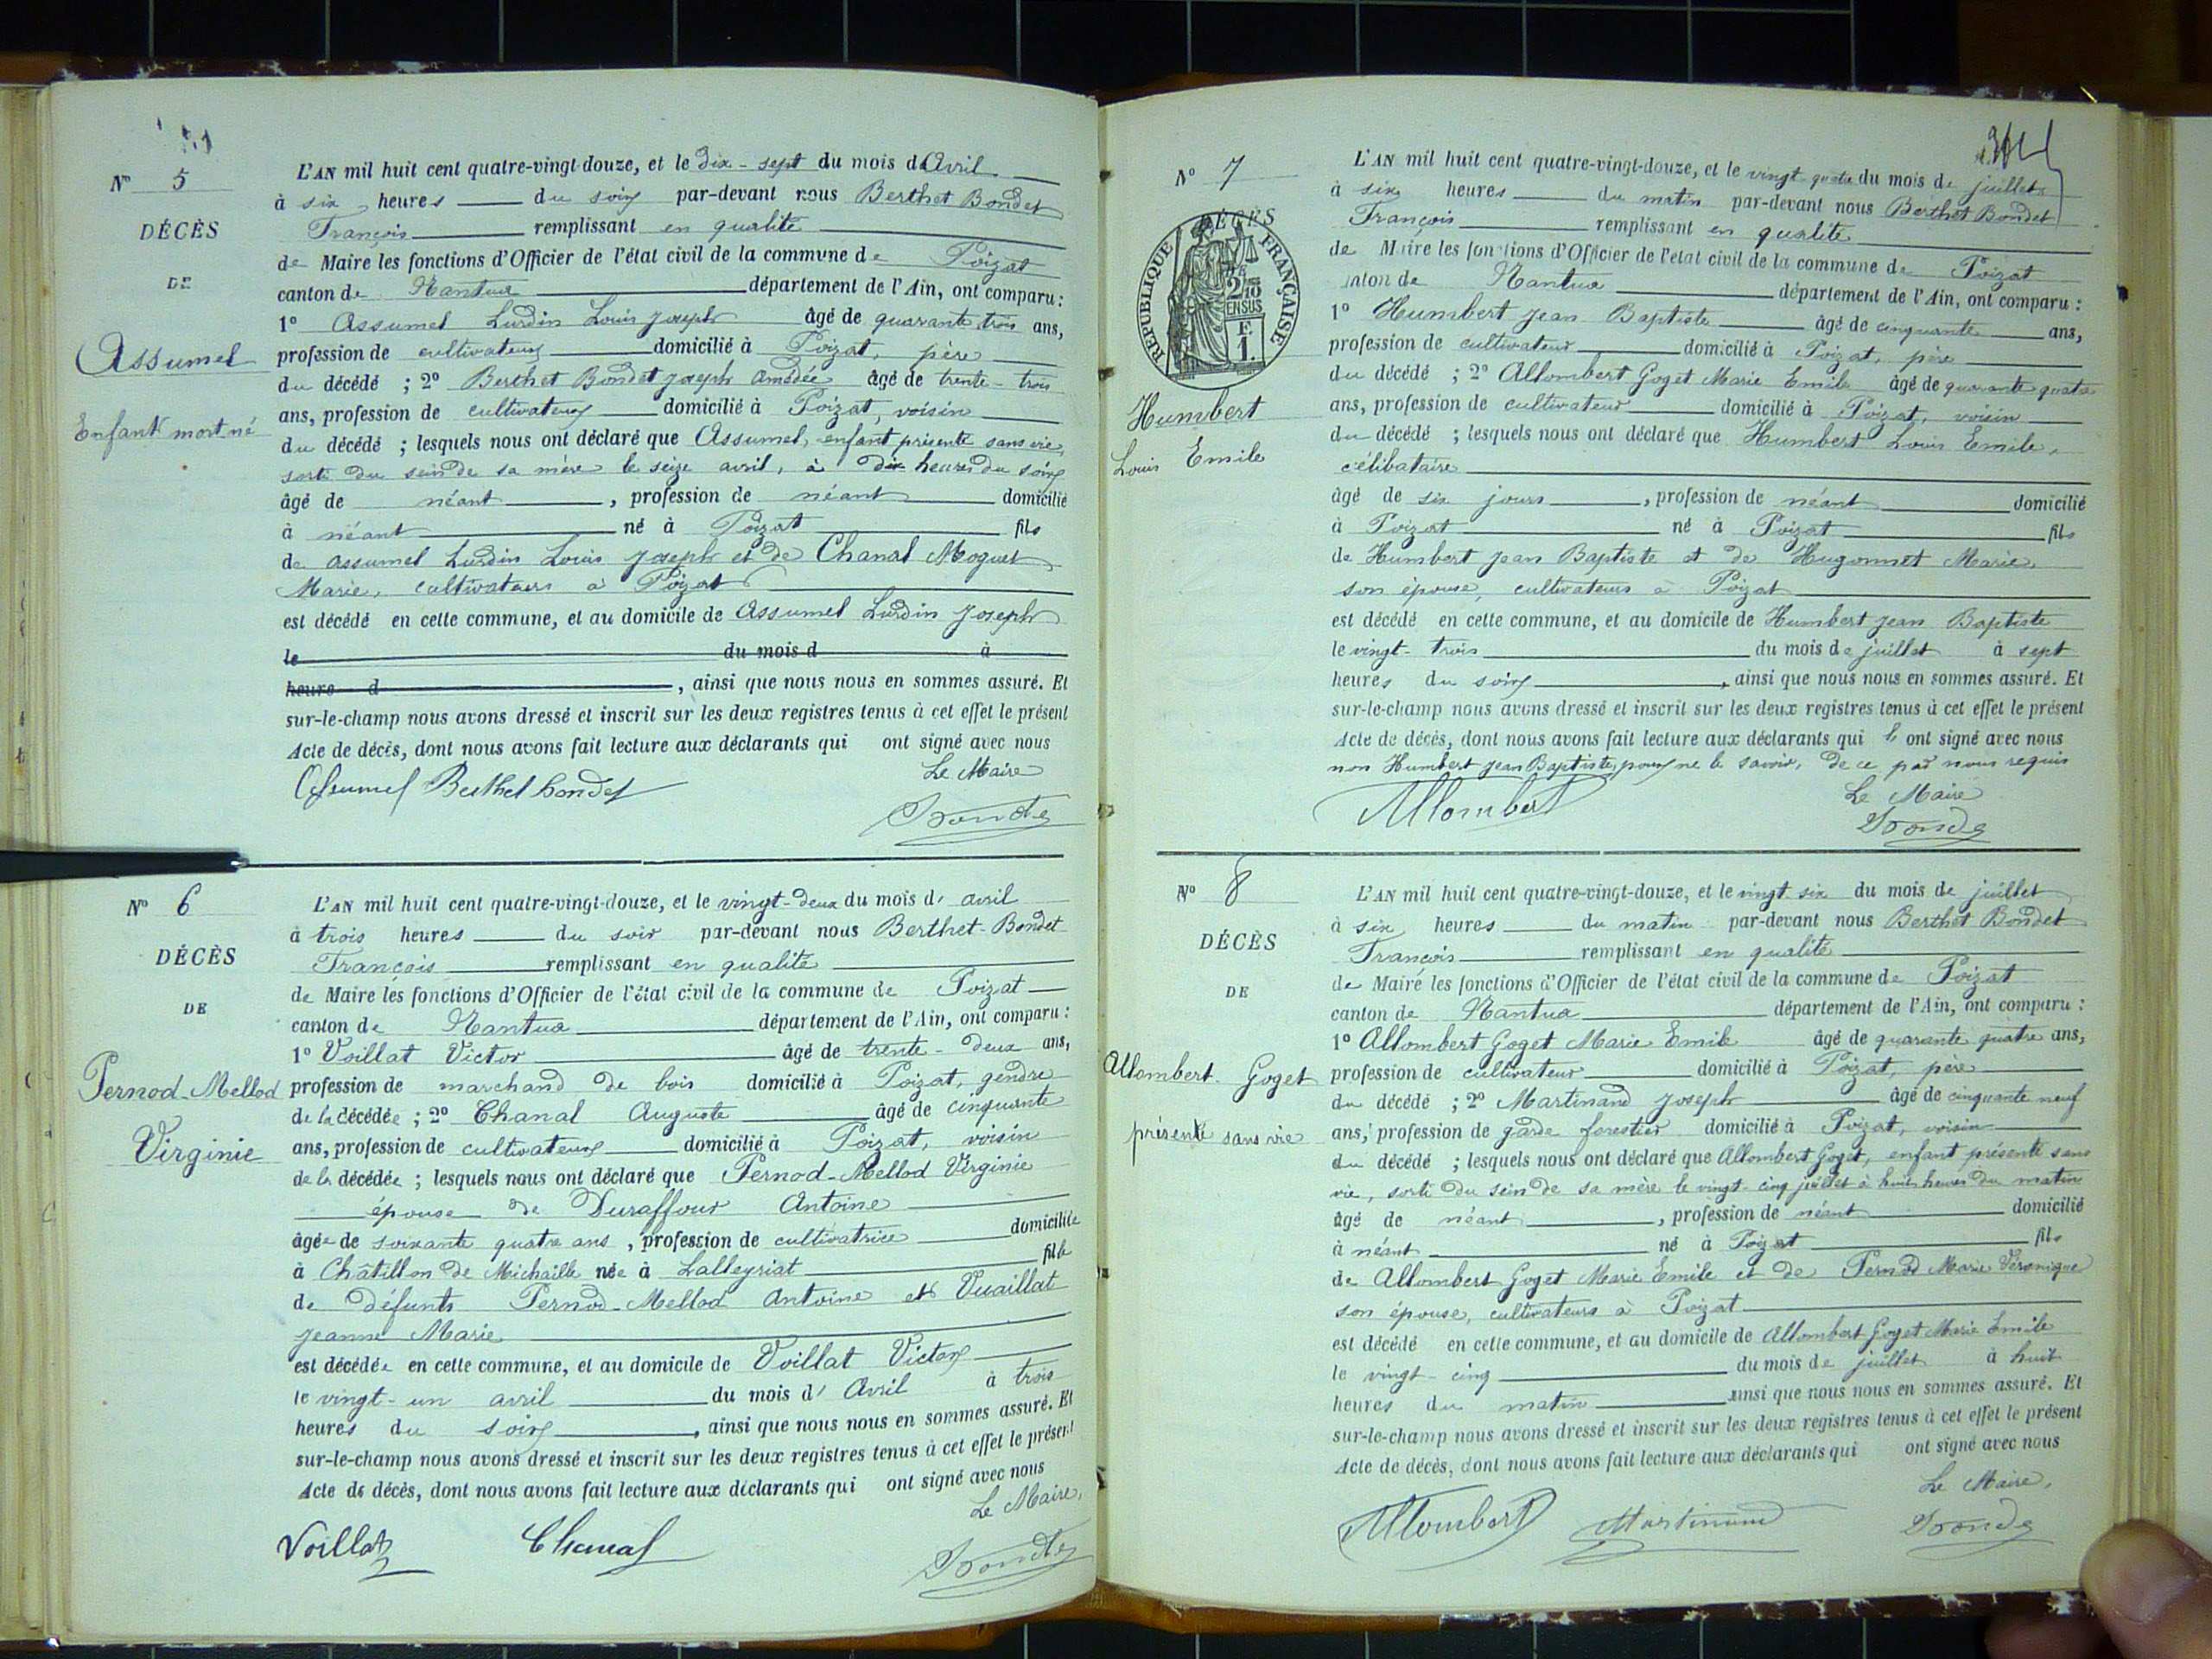 N° 5
DÉCÈS
DE
Assumel
Enfant mort né
L'AN mil huit cent quatre-vingt-douze, et le dix-sept du mois d'Avril
à six heures du soir par-devant nous Berthet Bondet
François remplissant en qualité
de Maire les fonctions d'Officier de l'état civil de la commune de Poizat
canton de Nantua département de l'Ain, ont comparu :
1° Assumel Lurdin Louis Joseph âgé de quarante trois ans,
profession de cultivateur domicilié à Poizat, père
du décédé ; 2° Berthet Bondet Joseph Amédée âgé de trente-trois
ans, profession de cultivateur domicilié à Poizat, voisin
du décédé ; lesquels nous ont déclaré que Assumel, enfant présenté sans vie,
sorti du sein de sa mère le seize avril, à dix heures du soir
âgé de néant, profession de néant domicilié
à néant né à Poizat fils
de Assumel Lurdin Louis Joseph et de Chanal Moguet
Marie, cultivateurs à Poizat
est décédé en cette commune, et au domicile de Assumel Lurdin Joseph
le du mois d à
heure d , ainsi que nous nous en sommes assuré. Et
sur-le-champ nous avons dressé et inscrit sur les deux registres tenus à cet effet le présent
Acte de décès, dont nous avons fait lecture aux déclarants qui ont signé avec nous
Le Maire
Assumel Berthet bondet
Bondet
N° 6
DÉCÈS
DE
Pernod-Mellod
Virginie
L'AN mil huit cent quatre-vingt-douze, et le vingt-deux du mois d'avril
à trois heures du soir par-devant nous Berthet-Bondet
François remplissant en qualité
de Maire les fonctions d'Officier de l'état civil de la commune de Poizat
canton de Nantua département de l'Ain, ont comparu :
1° Voillat Victor âgé de trente-deux ans,
profession de marchand de bois domicilié à Poizat, gendre
de la décédée ; 2° Chanal Auguste âgé de cinquante
ans, profession de cultivateur domicilié à Poizat, voisin
de la décédée ; lesquels nous ont déclaré que Pernod-Mellod Virginie
épouse de Duraffour Antoine
âgée de soixante quatre ans, profession de cultivatrice domiciliée
à Châtillon de Michaille née à Lalleyriat fille
de défunts Pernod-Mellod Antoine et Vuaillat
Jeanne Marie
est décédée en cette commune, et au domicile de Voillat Victor
le vingt-un avril du mois d'Avril à trois
heures du soir, ainsi que nous nous en sommes assuré. Et
sur-le-champ nous avons dressé et inscrit sur les deux registres tenus à cet effet le présent
Acte de décès, dont nous avons fait lecture aux déclarants qui ont signé avec nous
Le Maire,
Voillat Chanal
Bondet
N° 7
DÉCÈS
RÉPUBLIQUE FRANÇAISE
2/10 EN SUS
F. 1.
Humbert
Louis Emile
L'AN mil huit cent quatre-vingt-douze, et le vingt quatre du mois de juillet
à six heures du matin par-devant nous Berthet Bondet
François remplissant en qualité
de Maire les fonctions d'Officier de l'état civil de la commune de Poizat
canton de Nantua département de l'Ain, ont comparu :
1° Humbert Jean Baptiste âgé de cinquante ans,
profession de cultivateur domicilié à Poizat, père
du décédé ; 2° Allombert Goget Marie Emile âgé de quarante quatre
ans, profession de cultivateur domicilié à Poizat, voisin
du décédé ; lesquels nous ont déclaré que Humbert Louis Emile,
célibataire
âgé de six jours, profession de néant domicilié
à Poizat né à Poizat fils
de Humbert Jean Baptiste et de Hugonnet Marie,
son épouse, cultivateurs à Poizat
est décédé en cette commune, et au domicile de Humbert Jean Baptiste
le vingt-trois du mois de juillet à sept
heures du soir, ainsi que nous nous en sommes assuré. Et
sur-le-champ nous avons dressé et inscrit sur les deux registres tenus à cet effet le présent
Acte de décès, dont nous avons fait lecture aux déclarants qui ont signé avec nous
non Humbert Jean Baptiste, pour ne le savoir, de ce par nous requis
Le Maire
Allombert
Bondet
N° 8
DÉCÈS
DE
Allombert Goget
présenté sans vie
L'AN mil huit cent quatre-vingt-douze, et le vingt six du mois de juillet
à six heures du matin par-devant nous Berthet Bondet
François remplissant en qualité
de Maire les fonctions d'Officier de l'état civil de la commune de Poizat
canton de Nantua département de l'Ain, ont comparu :
1° Allombert Goget Marie Emile âgé de quarante quatre ans,
profession de cultivateur domicilié à Poizat, père
du décédé ; 2° Martinand Joseph âgé de cinquante neuf
ans, profession de garde forestier domicilié à Poizat, voisin
du décédé ; lesquels nous ont déclaré que Allombert Goget, enfant présenté sans
vie, sorti du sein de sa mère le vingt-cinq juillet à huit heures du matin
âgé de néant, profession de néant domicilié
à néant né à Poizat fils
de Allombert Goget Marie Emile et de Pernod Marie Véronique
son épouse, cultivateurs à Poizat
est décédé en cette commune, et au domicile de Allombert Goget Marie Emile
le vingt-cinq du mois de juillet à huit
heures du matin ainsi que nous nous en sommes assuré. Et
sur-le-champ nous avons dressé et inscrit sur les deux registres tenus à cet effet le présent
Acte de décès, dont nous avons fait lecture aux déclarants qui ont signé avec nous
Le Maire,
Allombert Martinand
Bondet